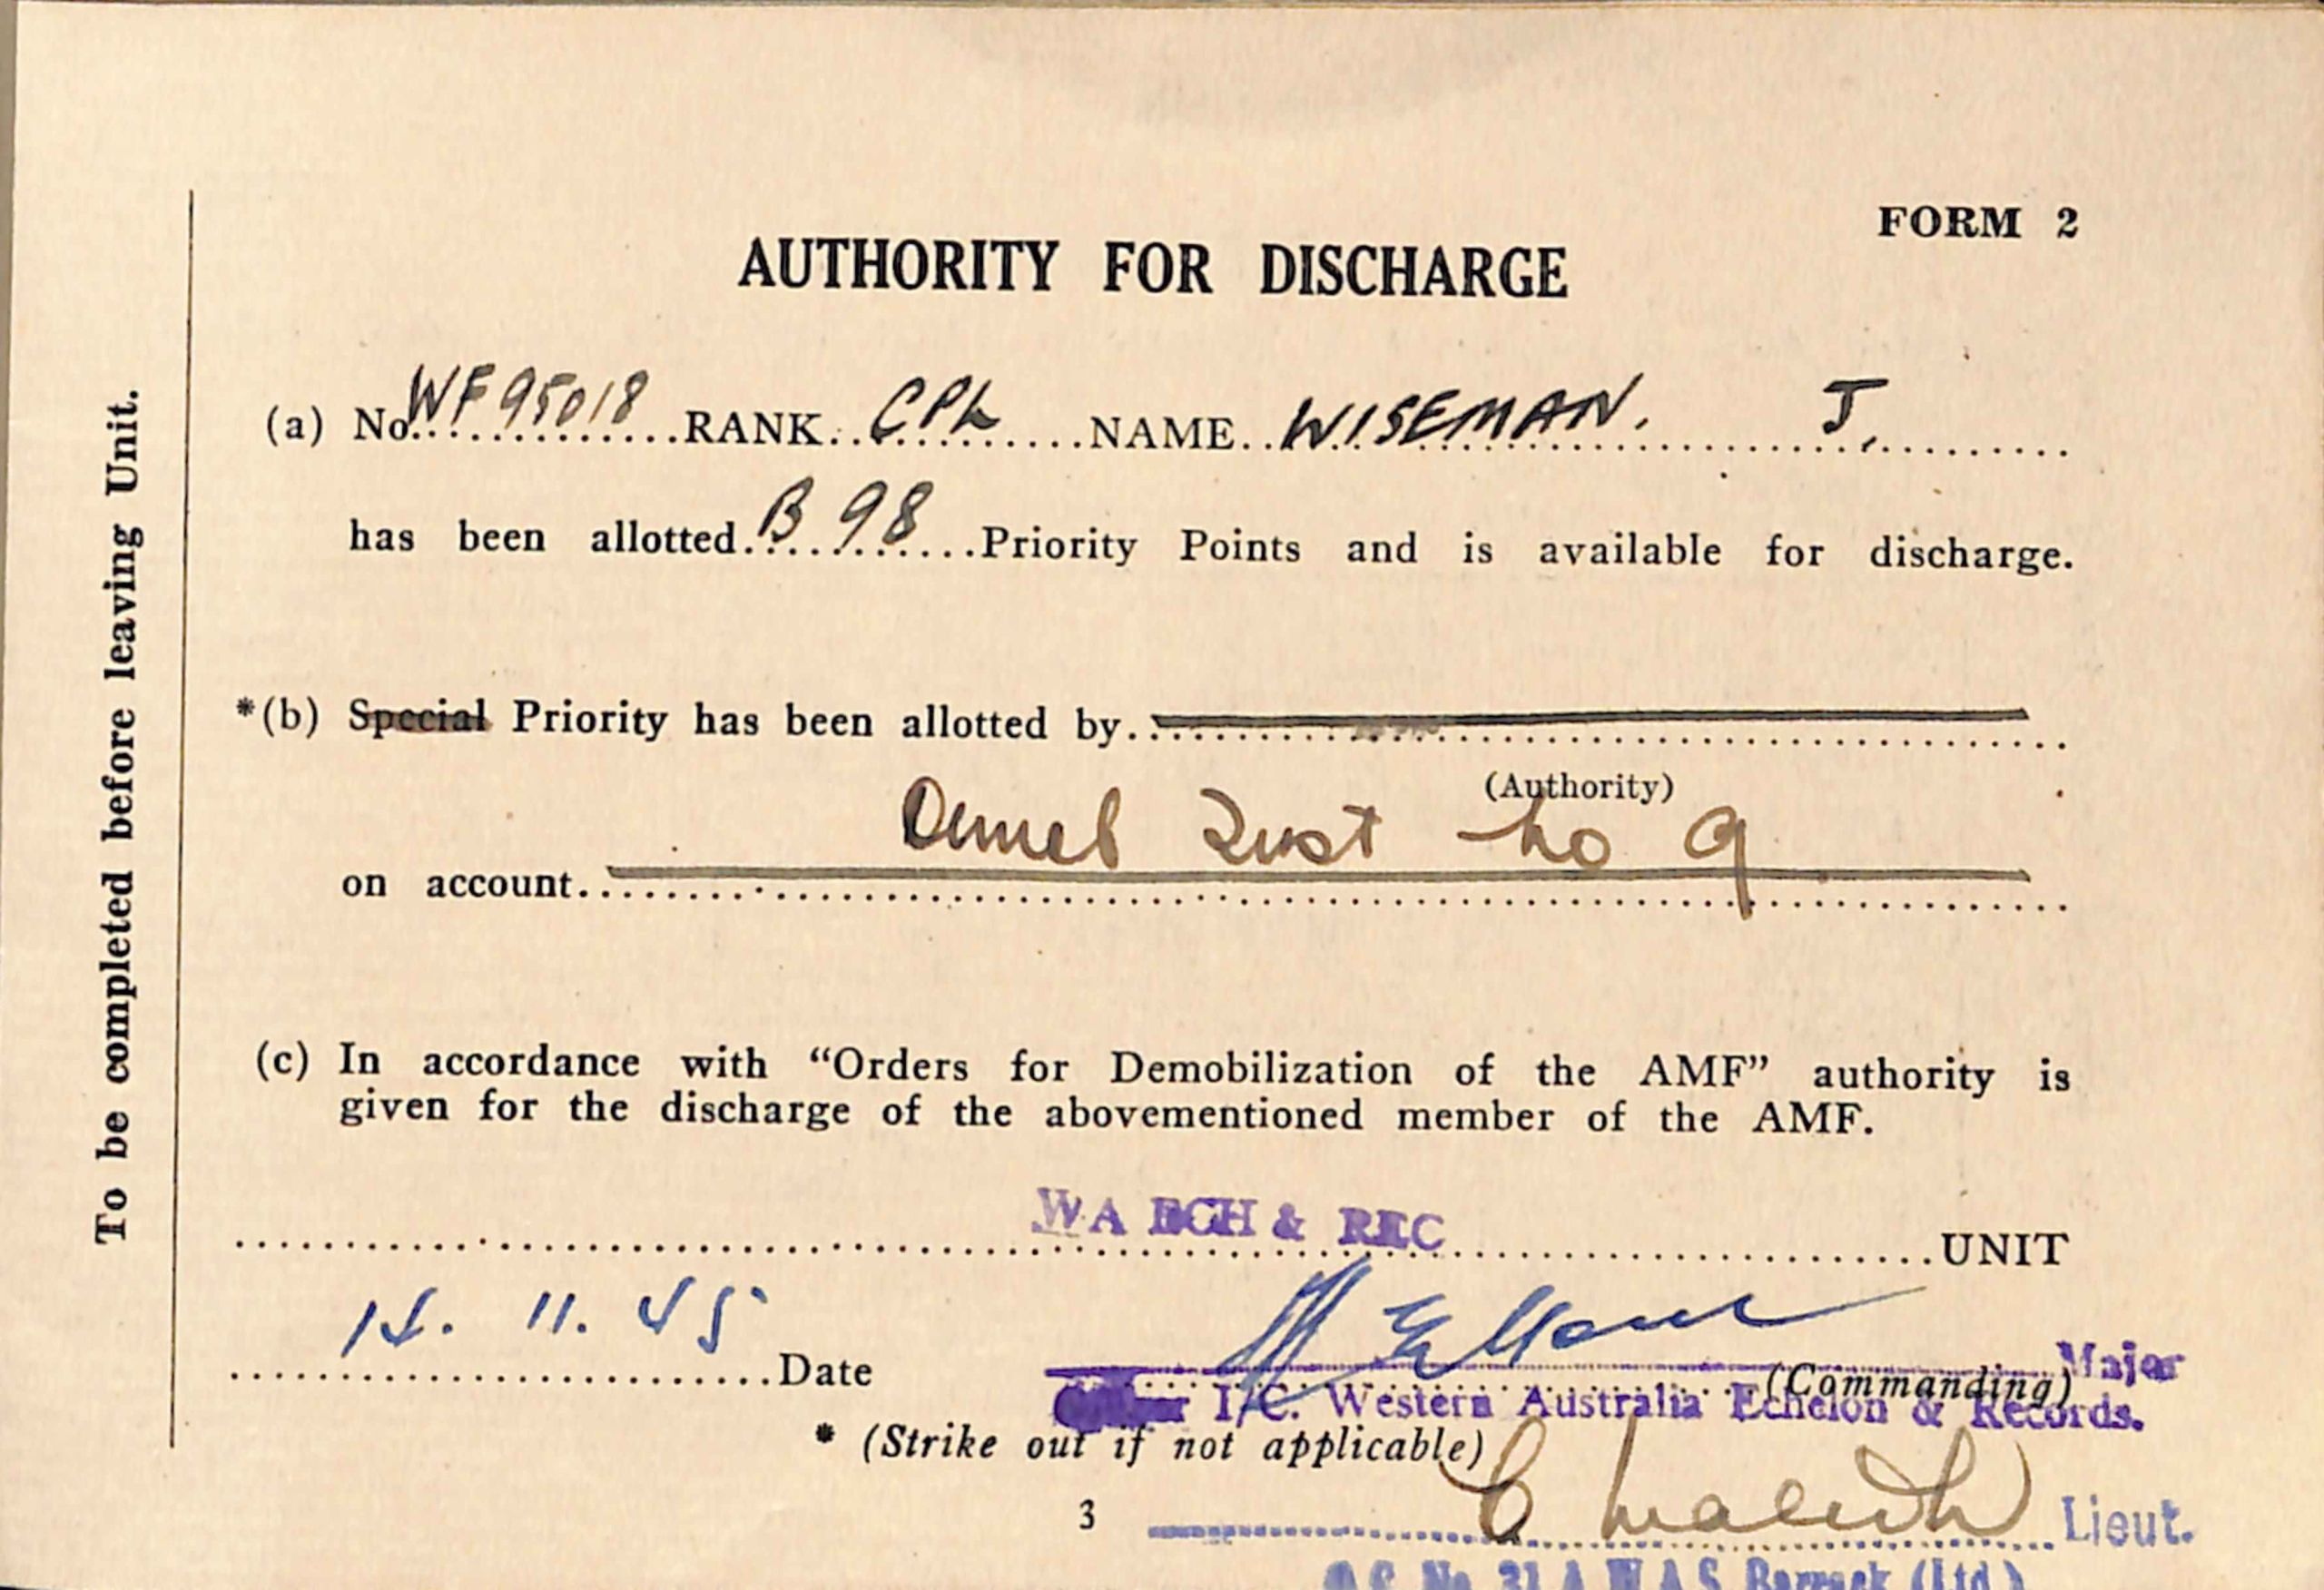 FORM 2
AUTHORITY FOR DISCHARGE
To be completed before leaving Unit.
(a) No. WF95018 RANK CPL NAME WISEMAN. J.
has been allotted B 98 Priority Points and is available for discharge.
*(b) Special Priority has been allotted by
(Authority)
on account
(c) In accordance with “Orders for Demobilization of the AMF” authority is
given for the discharge of the abovementioned member of the AMF.
WA ECH & REC UNIT
14. 11. 45 Date
Major
(Commanding)
I/C. Western Australia Echelon & Records.
* (Strike out if not applicable)
3
Lieut.
O.C. No 31 A.W.A.S. Barrack (Ltd.)